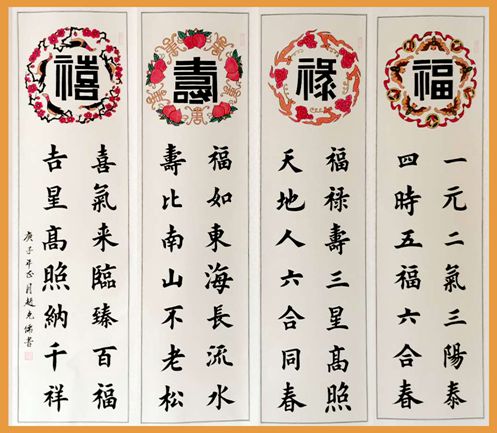 福
一元二氣三陽泰
四時五福六合春
禄
福禄壽三星髙照
天地人六合同春
壽
福如東海長流水
壽比南山不老松
禧
喜氣来臨臻百福
吉星髙照納千祥
庚子年正月趙書